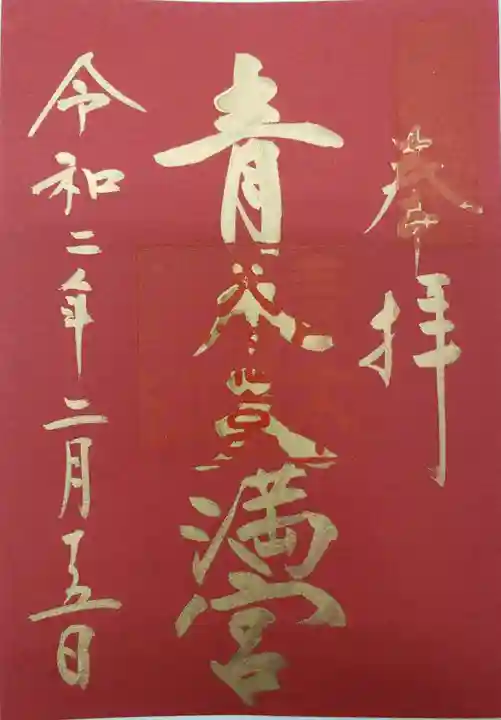 奉拝
青木天満宮
令和二年二月十五日